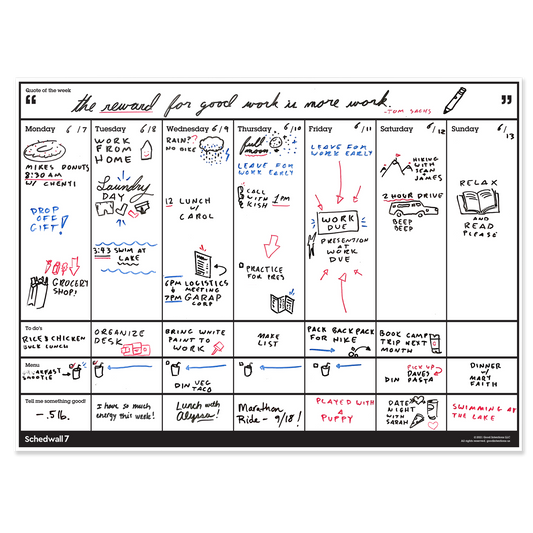 Quote of the week
“ the reward for good work is more work. -TOM SACHS ”
Monday 6/7
Tuesday 6/8
Wednesday 6/9
Thursday 6/10
Friday 6/11
Saturday 6/12
Sunday 6/13
MIKES DONUTS
8:30 AM
W/ CHENTI
DROP
OFF
GIFT!
GROCERY
SHOP?
WORK
FROM
HOME
Laundry
DAY
3:43 SWIM AT
LAKE
RAIN?
NO BIKE
12 LUNCH
W/
CAROL
6PM LOGISTICS
+ MEETING
7PM GARAP
CORP
full
moon
LEAVE FOR
WORK EARLY
CALL
WITH
KISH 1PM
PRACTICE
FOR PRES
LEAVE FOR
WORK EARLY
WORK
DUE
PRESENTION
AT
WORK
DUE
HIKING
WITH
SEAN
JAMES
2 HOUR DRIVE
BEEP
BEEP
RELAX
AND
READ
PLEASE
To do's
RICE & CHICKEN
BULK LUNCH
ORGANIZE
DESK
BRING WHITE
PAINT TO
WORK
MAKE
LIST
PACK BACKPACK
FOR HIKE
BOOK CAMP
TRIP NEXT
MONTH
Menu
SMOOTIE
DIN VEG
TACO
PICK UP
DAVES
DIN PASTA
DINNER
W/
MARY
FAITH
Tell me something good!
-.5lb.
I have so much
energy this week!
Lunch with
Alyssa!
Marathon
Ride - 9/18!
PLAYED WITH
A
PUPPY
DATE
NIGHT
WITH
SARAH
SWIMMING AT
THE LAKE
Schedwall 7